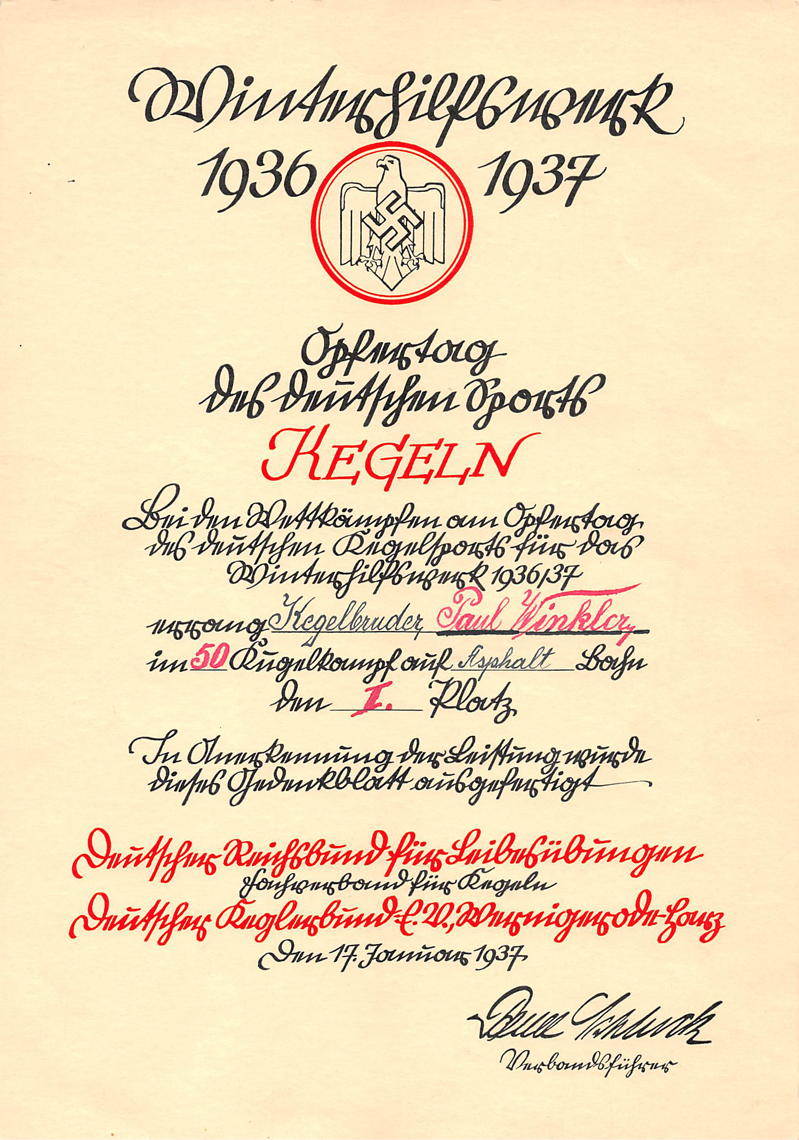 Winterhilfswerk
1936 1937
Opfertag
des deutschen Sports
KEGELN
Bei den Wettkämpfen am Opfertag
des deutschen Kegelsports für das
Winterhilfswerk 1936/37
errang Kegelbruder Paul Winkler,
im 50 Kugelkampf auf Asphalt Bahn
den I. Platz
In Anerkennung der Leistung wurde
dieses Gedenkblatt ausgefertigt
Deutscher Reichsbund für Leibesübungen
Fachverband für Kegeln
Deutscher Keglerbund E.V., Wernigerode-Harz
Den 17. Januar 1937
Verbandsführer